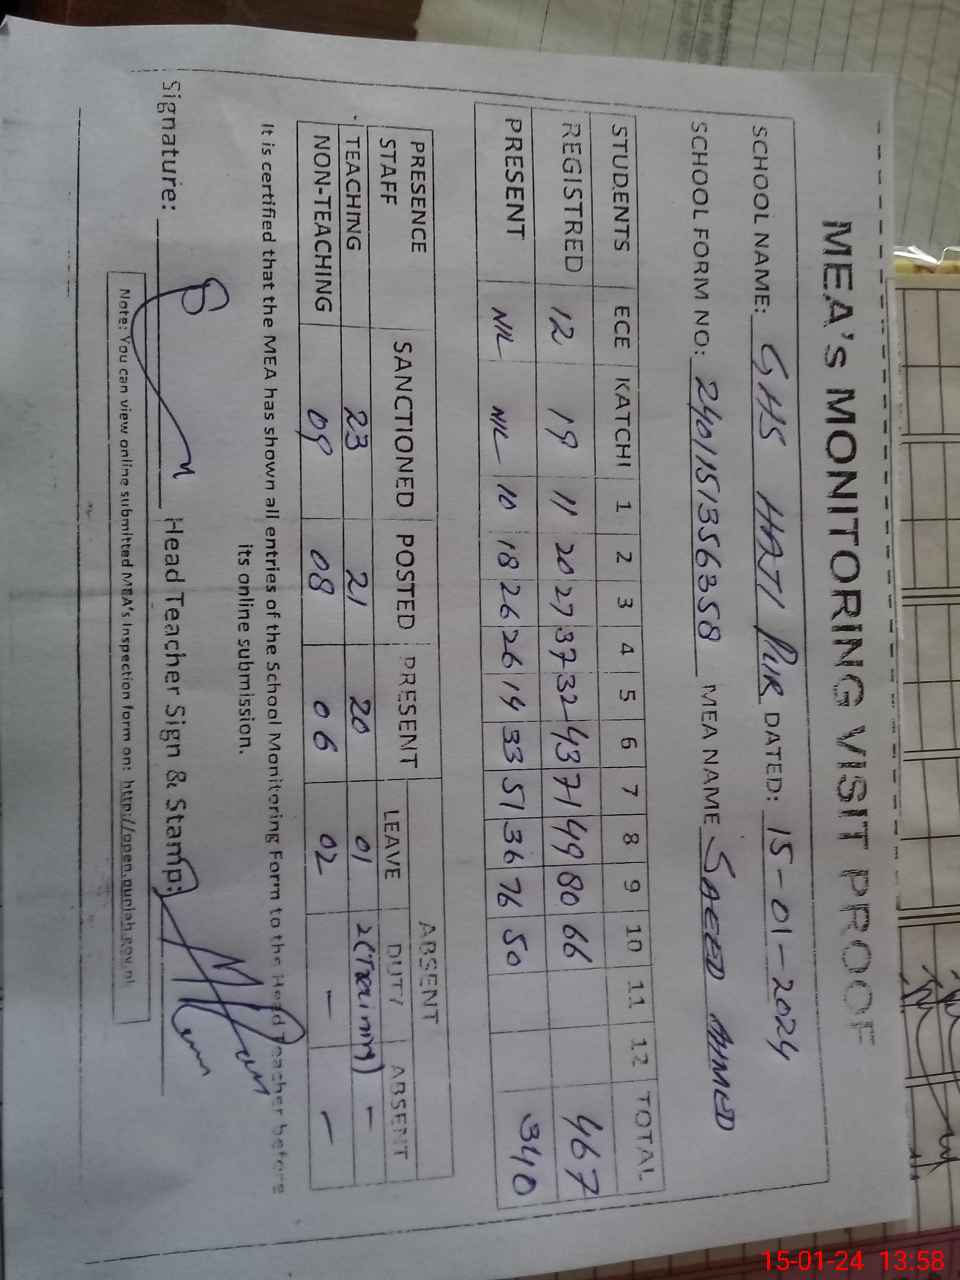 MEA's MONITORING VISIT PROOF
SCHOOL NAME: GHS HAJI PUR DATED: 15-01-2024
SCHOOL FORM NO: 2401151356358 MEA NAME SAEED AHMED
STUDENTS ECE KATCHI 1 2 3 4 5 6 7 8 9 10 11 12 TOTAL
REGISTRED 12 19 11 20 27 37 32 43 71 49 80 66 467
PRESENT NIL NIL 10 18 26 26 14 33 51 36 76 50 340
PRESENCE ABSENT
STAFF SANCTIONED POSTED PRESENT LEAVE DUTY ABSENT
TEACHING 23 21 20 01 2(Training) -
NON-TEACHING 09 08 06 02 - -
It is certified that the MEA has shown all entries of the School Monitoring Form to the Head Teacher before
its online submission.
Signature: Head Teacher Sign & Stamp:
Note: You can view online submitted MEA's Inspection form on: http://open.punjab.gov.pk
15-01-24 13:58